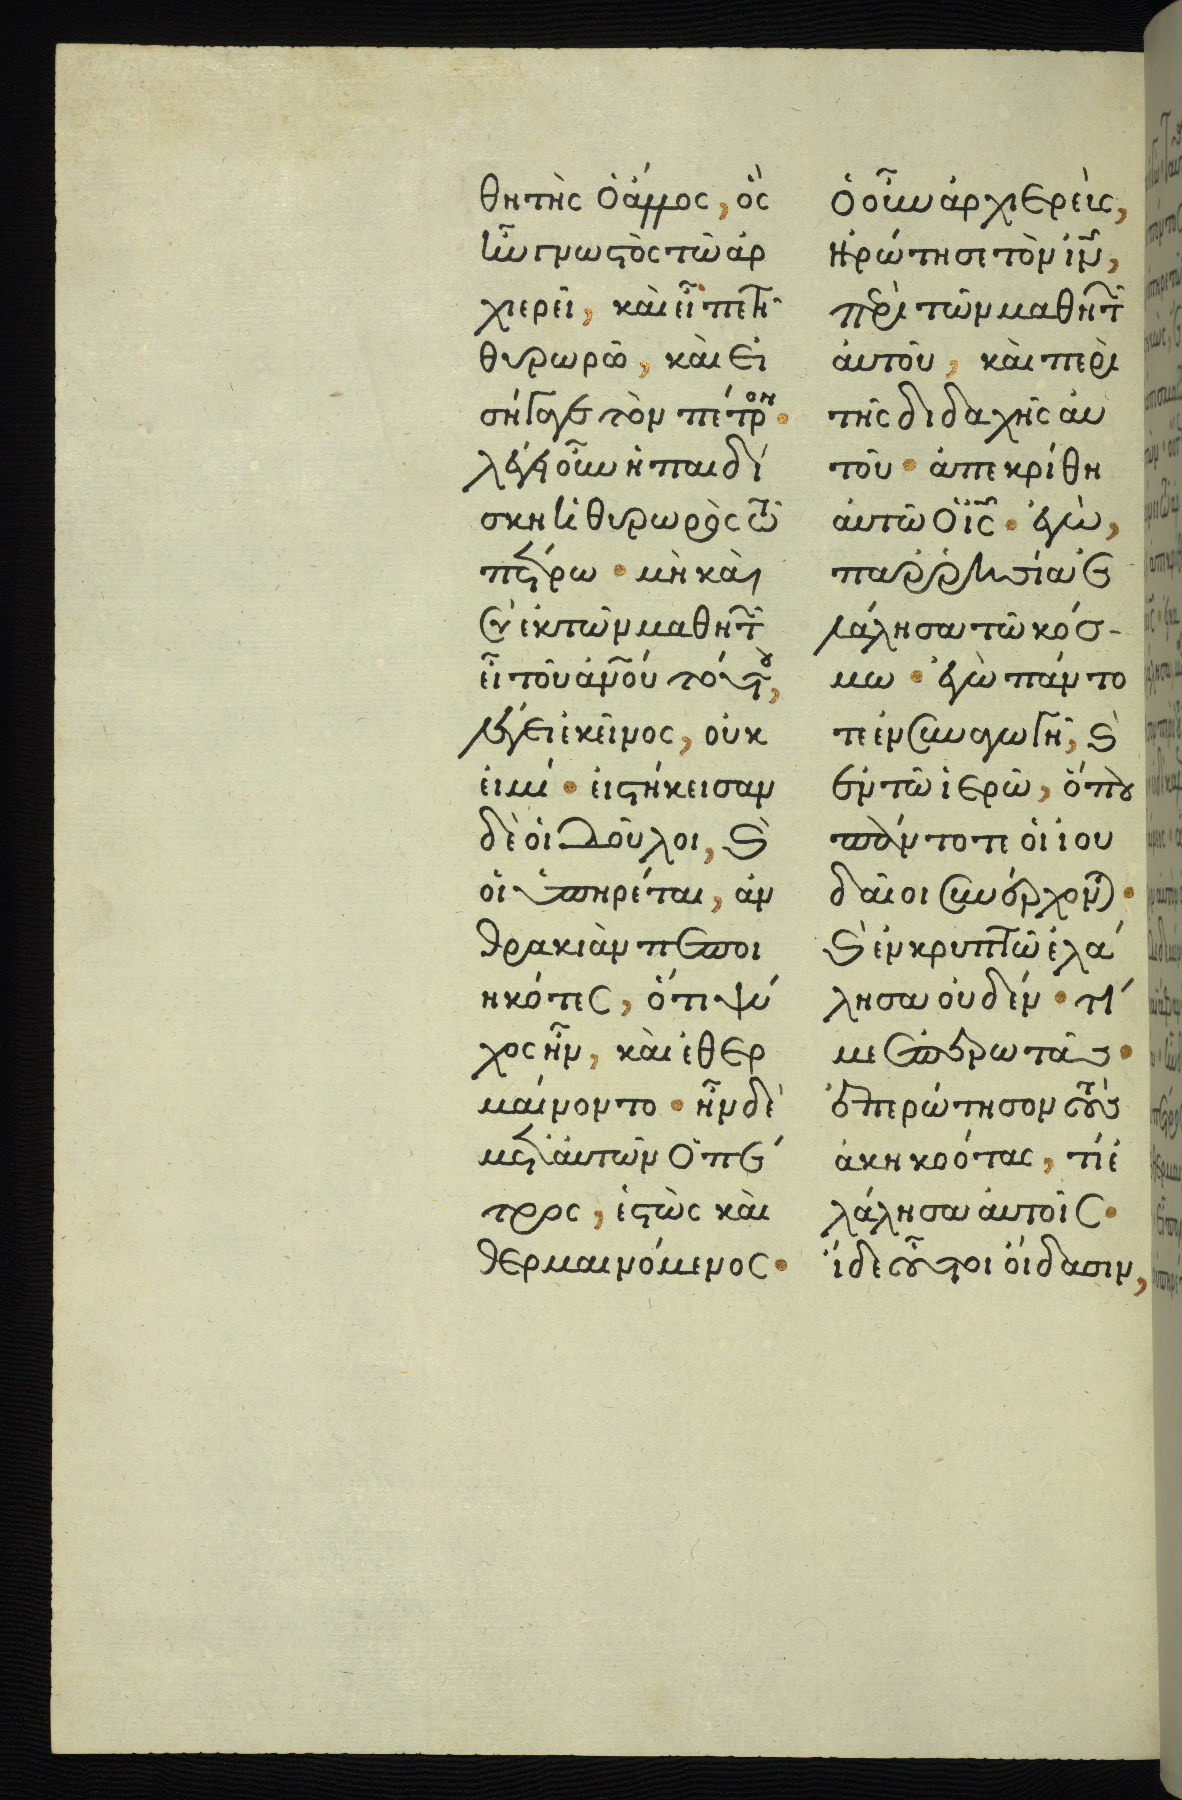 θητὴς ὁ ἄλλος, ὃς
ἦν γνωστὸς τῷ ἀρ
χιερεῖ, καὶ εἶπε τῇ
θυρωρῷ, καὶ εἰ
σήγαγε τὸν πέτρον.
λέγει οὖν ἡ παιδί
σκη ἡ θυρωρὸς τῷ
πέτρω. μὴ καὶ
σὺ ἐκ τῶν μαθητῶν
εἶ τοῦ ἀνου τούτου,
λέγει ἐκεῖνος, οὐκ
εἰμί. εἰστήκεισαν
δὲ οἱ δοῦλοι, καὶ
οἱ ὑπηρέται, ἀν
θρακιὰν πεποι
ηκότες, ὅτι ψύ
χος ἦν, καὶ ἐθερ
μαίνοντο. ἦν δὲ
μετ' αὐτῶν ὁ πέ
τρος, ἑστὼς καὶ
θερμαινόμενος.
ὁ οὖν ἀρχιερεὺς,
ἠρώτησε τὸν ἰν,
περὶ τῶν μαθητῶν
αὐτοῦ, καὶ περὶ
τῆς διδαχῆς αὐ
τοῦ. ἀπεκρίθη
αὐτῷ ὁ ἰς. ἐγὼ,
παρρησίᾳ ἐ
λάλησα τῷ κόσ-
μω. ἐγὼ πάντο
τε ἐν συναγωγῇ, καὶ
ἐν τῷ ἱερῷ, ὅπου
πάντοτε οἱ ἰου
δαῖοι συνέρχονται.
καὶ ἐν κρυπτῷ ἐλά
λησα οὐδέν. τί
με ἐπερωτᾷς.
ἐπερώτησον τοὺς
ἀκηκοότας, τί ἐ
λάλησα αὐτοῖς.
ἴδε οὗτοι οἴδασιν,